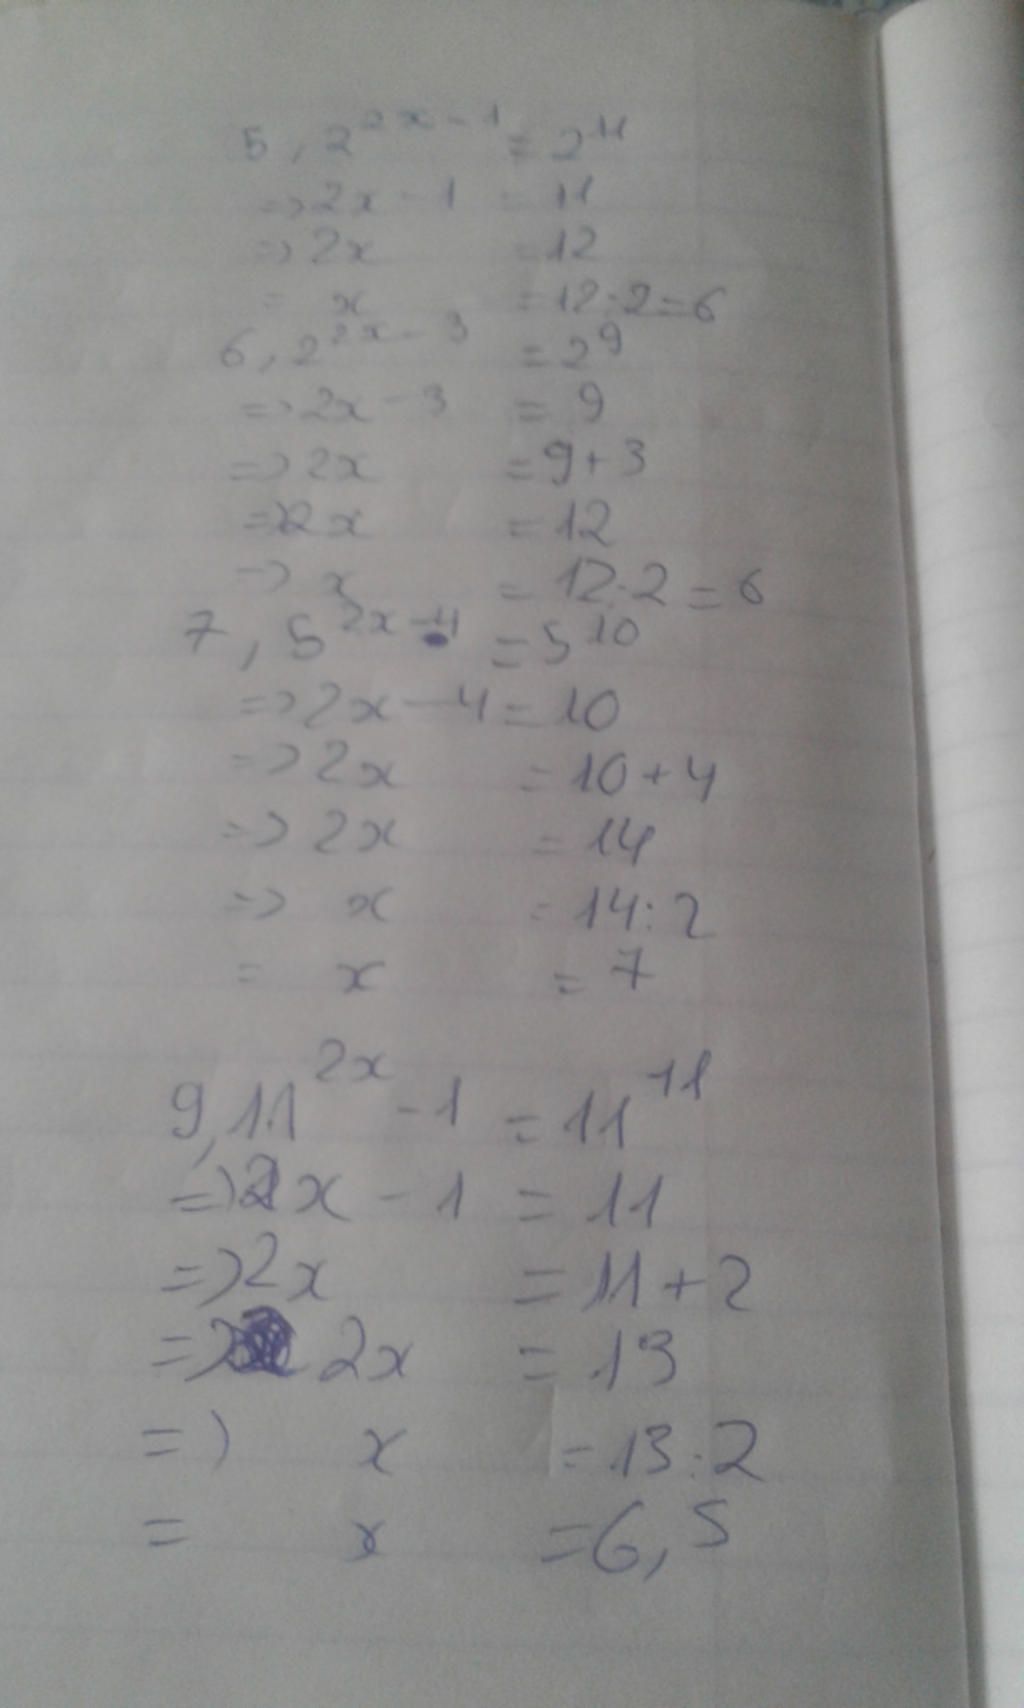 5, 2^{2x-1} = 2^{11}
=> 2x - 1 = 11
=> 2x = 12
= x = 12:2 = 6
6, 2^{2x-3} = 2^9
=> 2x - 3 = 9
=> 2x = 9 + 3
=> 2x = 12
=> x = 12:2 = 6
7, 5^{2x-4} = 5^{10}
=> 2x - 4 = 10
=> 2x = 10 + 4
=> 2x = 14
=> x = 14:2
= x = 7
9, 11^{2x} - 1 = 11^{11}
=> 2x - 1 = 11
=> 2x = 11 + 2
=> 2x = 13
=> x = 13:2
= x = 6,5